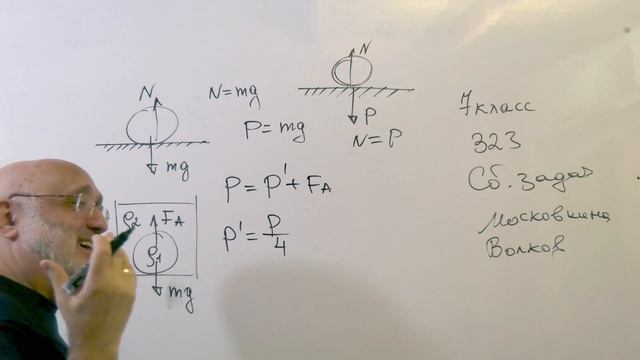 N
mg
ρ₂
F_A
ρ₁
mg
N = mg
P = mg
P = P' + F_A
P' = P/4
N
P
N = P
7 класс
323
Сб. задач
Московкина
Волков